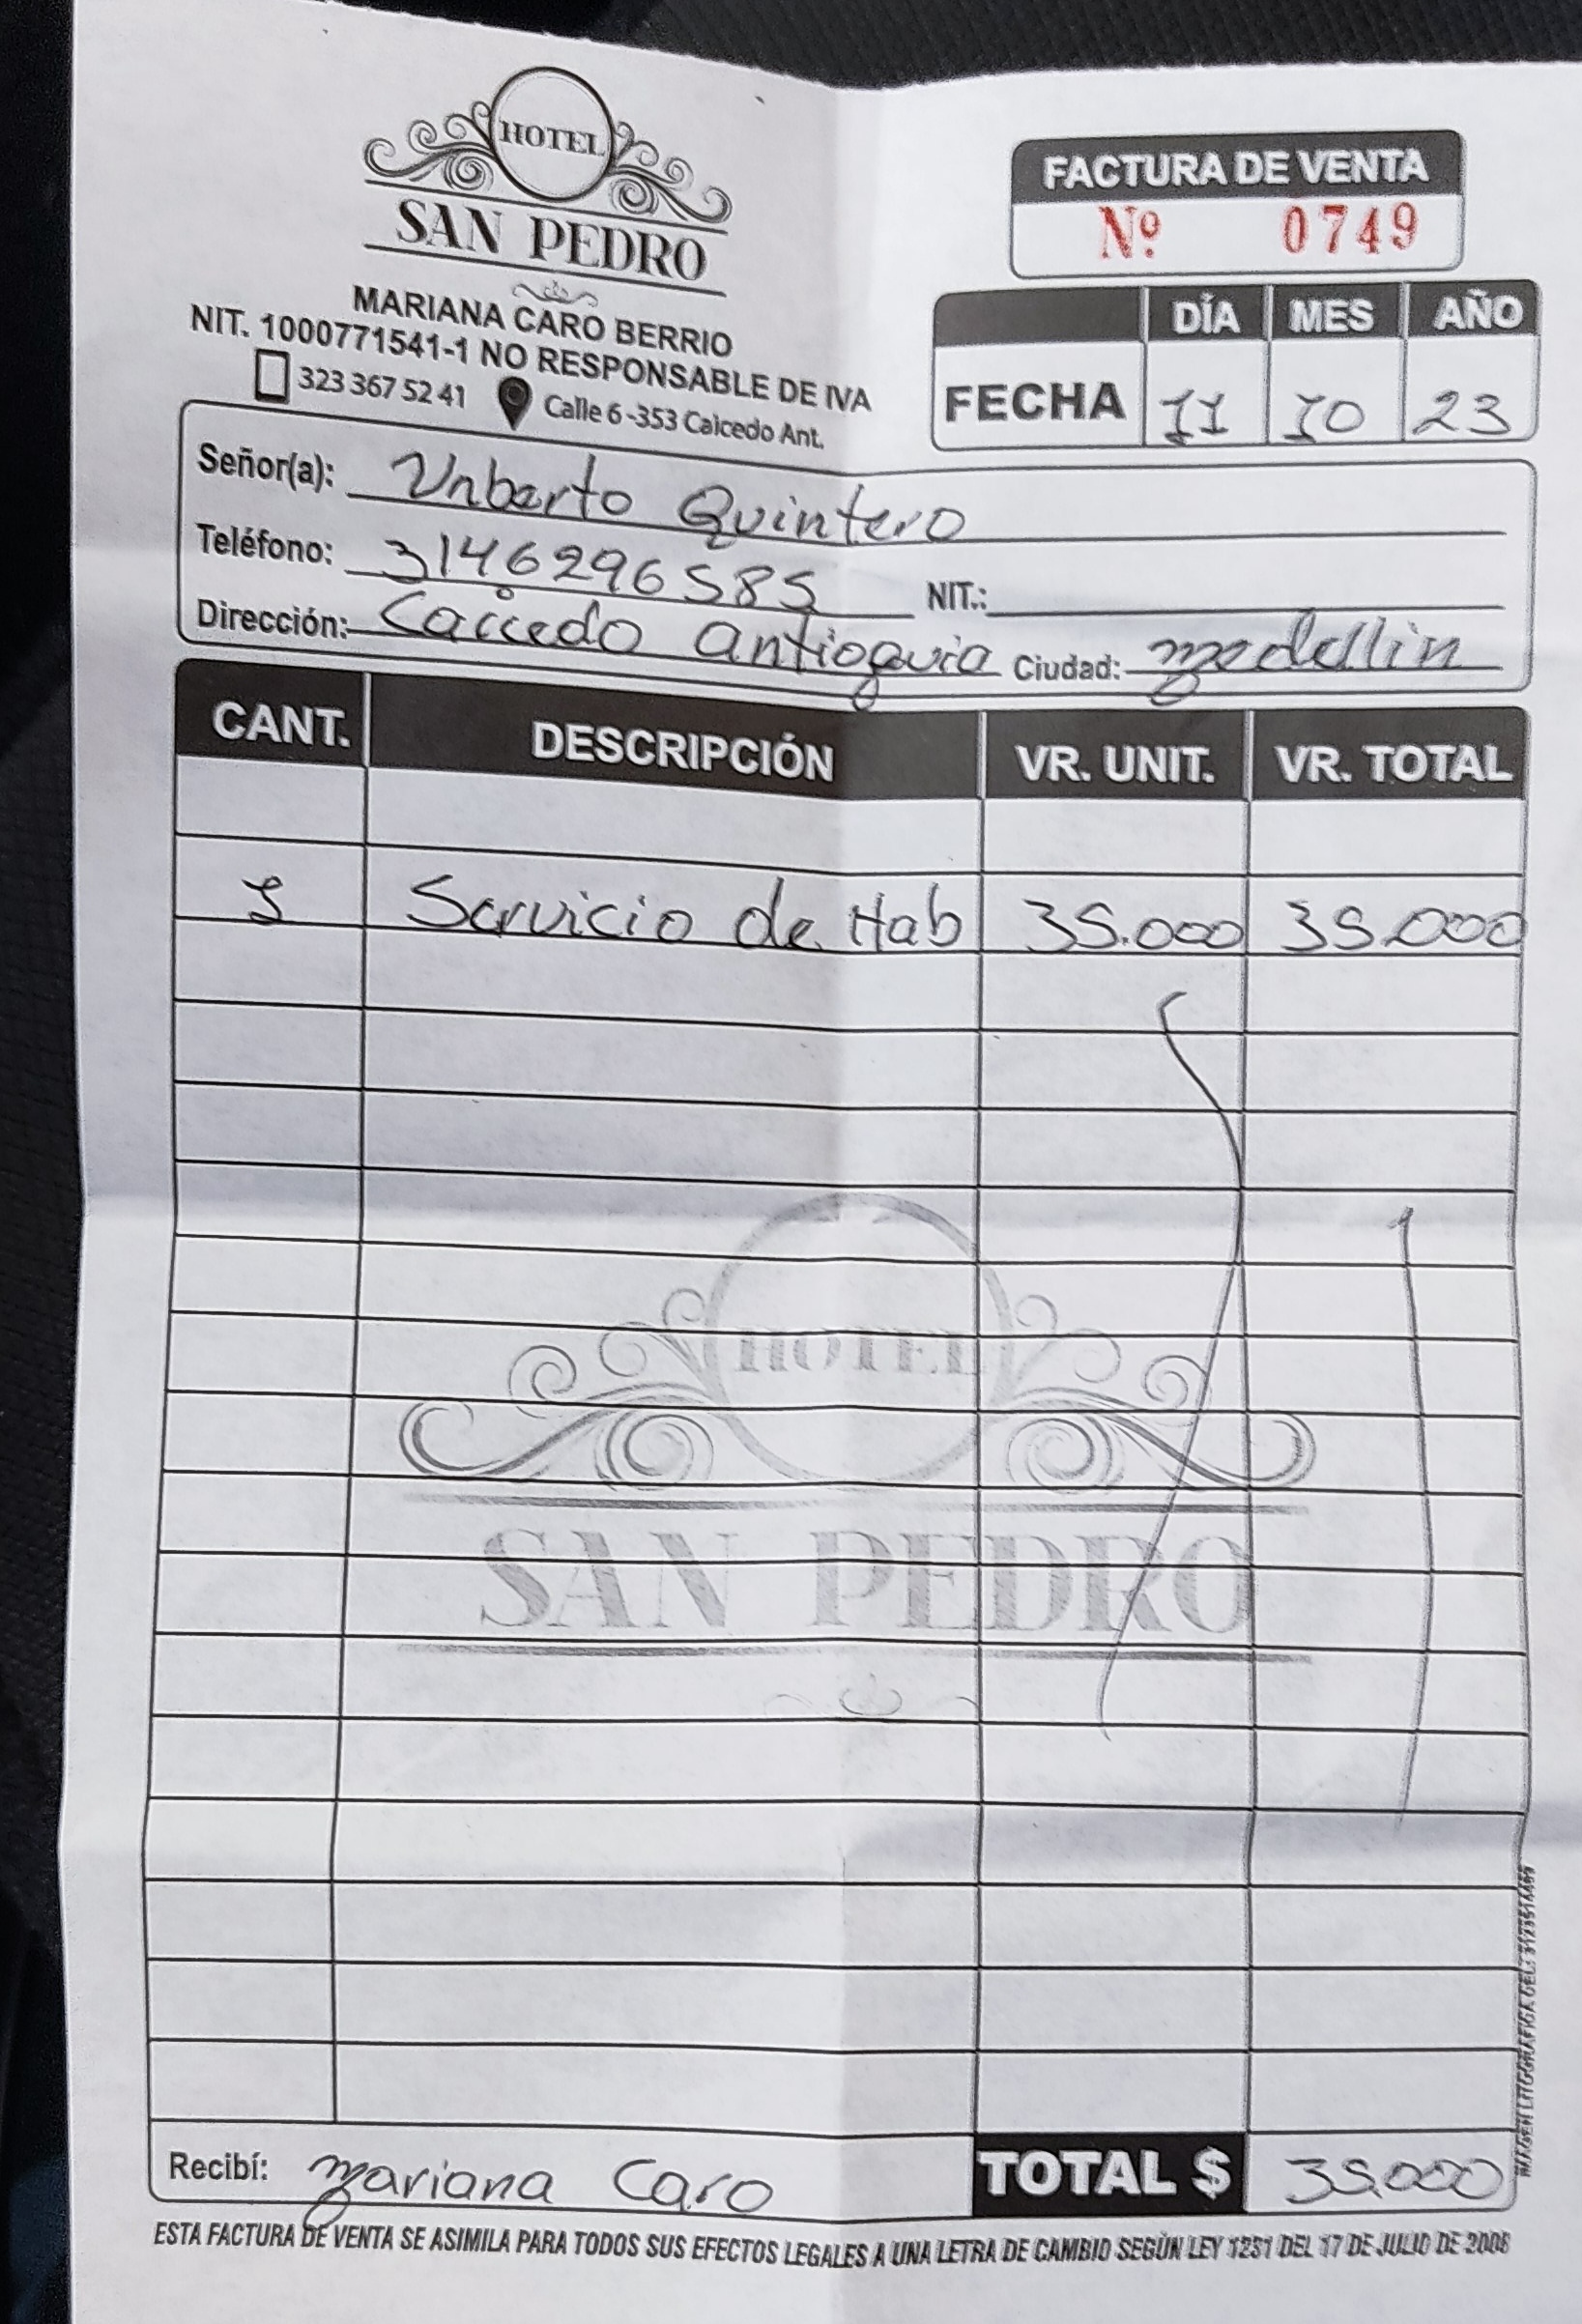 HOTEL
SAN PEDRO
MARIANA CARO BERRIO
NIT. 1000771541-1 NO RESPONSABLE DE IVA
323 367 52 41 Calle 6 -353 Caicedo Ant.
FACTURA DE VENTA
Nº 0749
DÍA MES AÑO
FECHA 11 10 23
Señor(a): Unberto Quintero
Teléfono: 3146296585 NIT.:
Dirección: Caicedo Antioquia Ciudad: medellin
CANT. DESCRIPCIÓN VR. UNIT. VR. TOTAL
1 Servicio de Hab 35.000 35.000
HOTEL
SAN PEDRO
Recibí: Mariana Caro TOTAL $ 35.000
ESTA FACTURA DE VENTA SE ASIMILA PARA TODOS SUS EFECTOS LEGALES A UNA LETRA DE CAMBIO SEGÚN LEY 1231 DEL 17 DE JULIO DE 2008